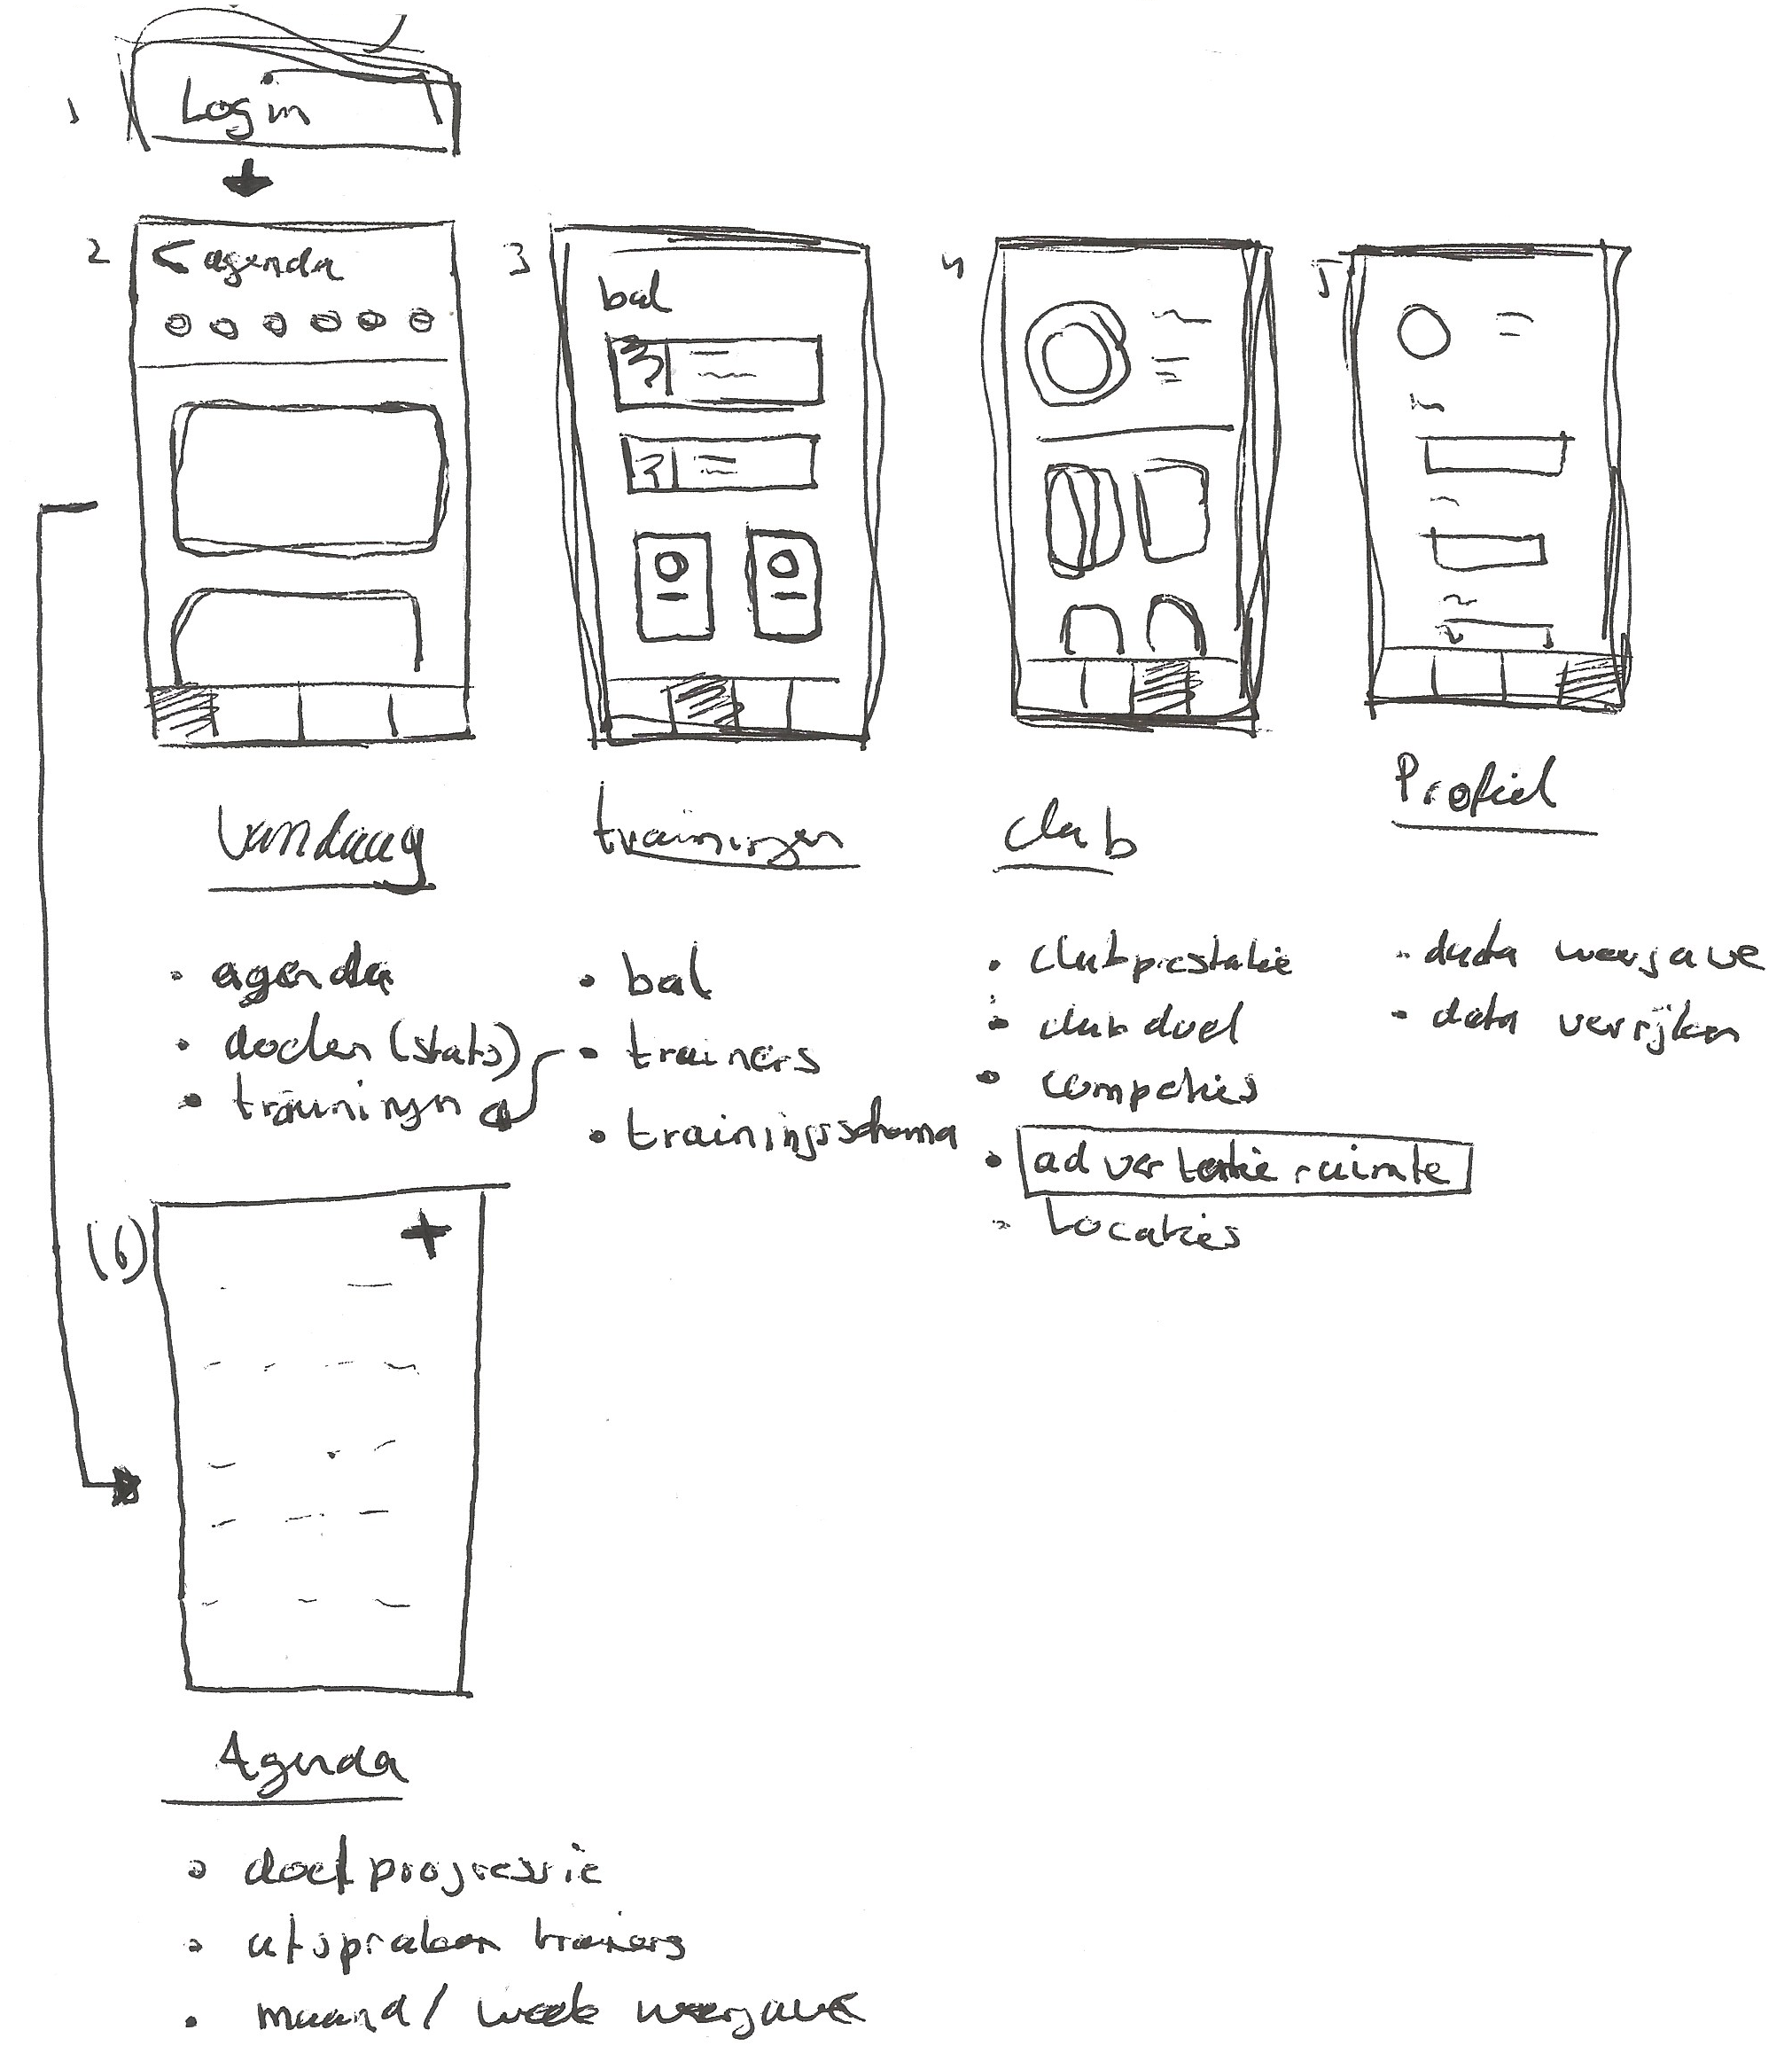 1
Login
2
< agenda
3
bal
4
5
Vandaag
trainingen
Club
Profiel
• agenda
• doelen (stats)
• trainingen
• bal
• trainers
• trainingsschema
• clubprestatie
• club doel
• competies
• advertentie ruimte
• Locaties
• data weergave
• data verrijken
(6)
+
Agenda
• doelprogressie
• afspraken trainers
• maand / week weergave